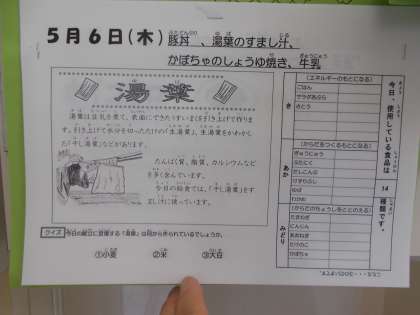 5月6日(木) 豚丼、湯葉のすまし汁、
かぼちゃのしょうゆ焼き、牛乳
湯葉
湯葉は豆乳を煮て、表面にできたうすいまくを引き上げて作りま
す。引き上げて水分を切っただけの「生湯葉」、生湯葉をかわかし
た「干し湯葉」などがあります。
たんぱく質、脂質、カルシウムなど
を多く含んでいます。
今日の給食では、「干し湯葉」をす
まし汁に使っています。
クイズ 今日の献立に登場する「湯葉」は何から作られているでしょうか。
①小麦 ②米 ③大豆
今日、使用している食品は
14
種類です。
き
(エネルギーのもとになる)
ごはん
サラダあぶら
さとう
あか
(からだをつくるもとになる)
ぎゅうにゅう
ぶたにく
だいこんは
けずりぶし
ゆば
わかめ
みどり
(からだのちょうしをととのえる)
たまねぎ
にんじん
あおねぎ
たけのこ
かぼちゃ